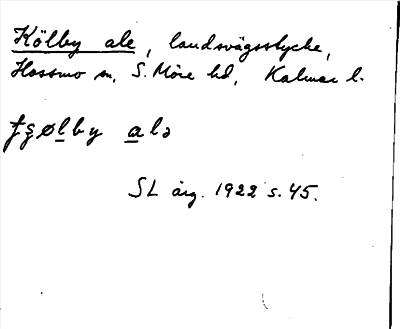 Kölby ale, landsvägsstycke,
Hossmo sn, S. Möre hd, Kalmar l.
ƒʂølby alə
SL årg. 1922 s. 45.